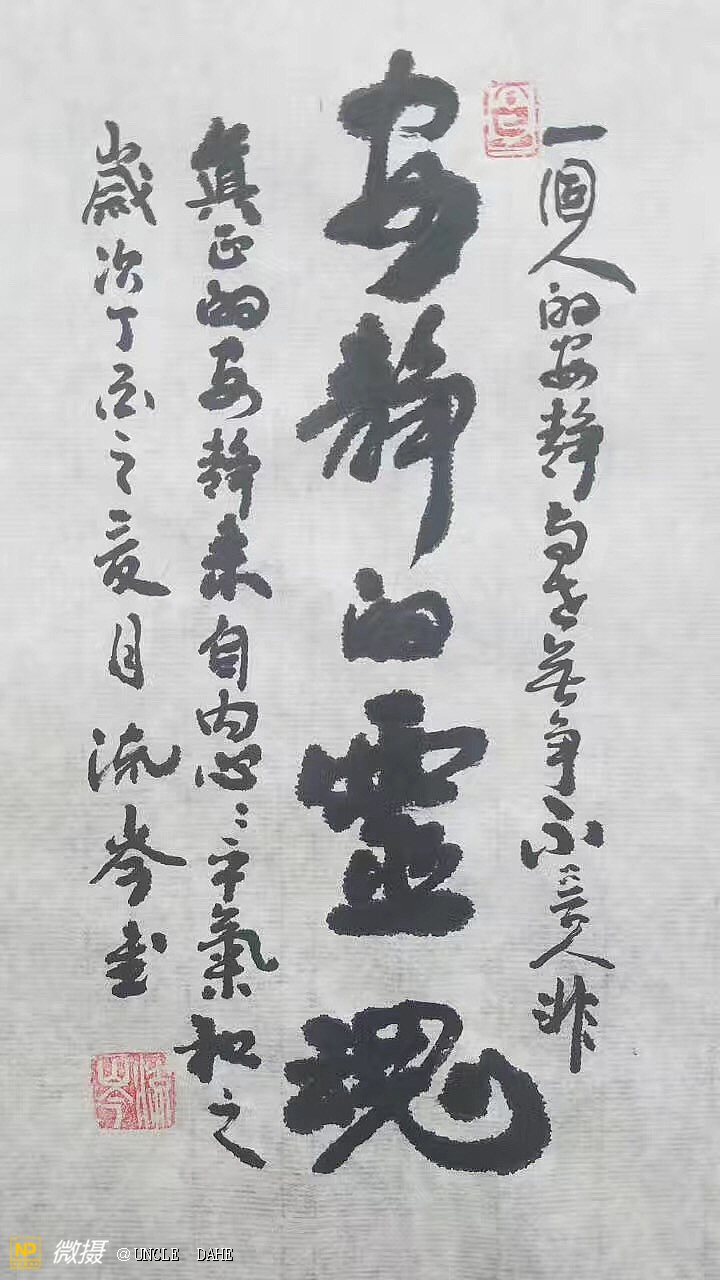 一個人的安静与世无争不言人非
安静的靈魂
真正的安静来自内心心平氣和之
歲次丁酉之夏月流岑書
流岑
NP 微摄 @UNCLE DAHE